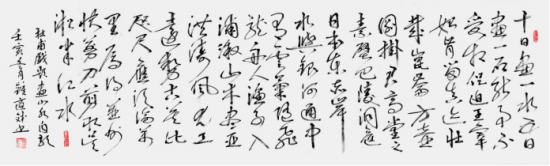 十日畫一水五日
畫一石能事不
受相促迫王宰
始肯留真迹壯
哉崑崙方壺
圖掛君高堂之
素壁巴陵洞庭
日本東赤岸
水與銀河通中
有雲氣隨飛
龍舟人漁子入
浦漵山木盡亞
洪濤風尤工
遠勢古莫比
咫尺應須論萬
里焉得并州
快剪刀剪取吳
淞半江水
杜甫戲題畫山水圖歌